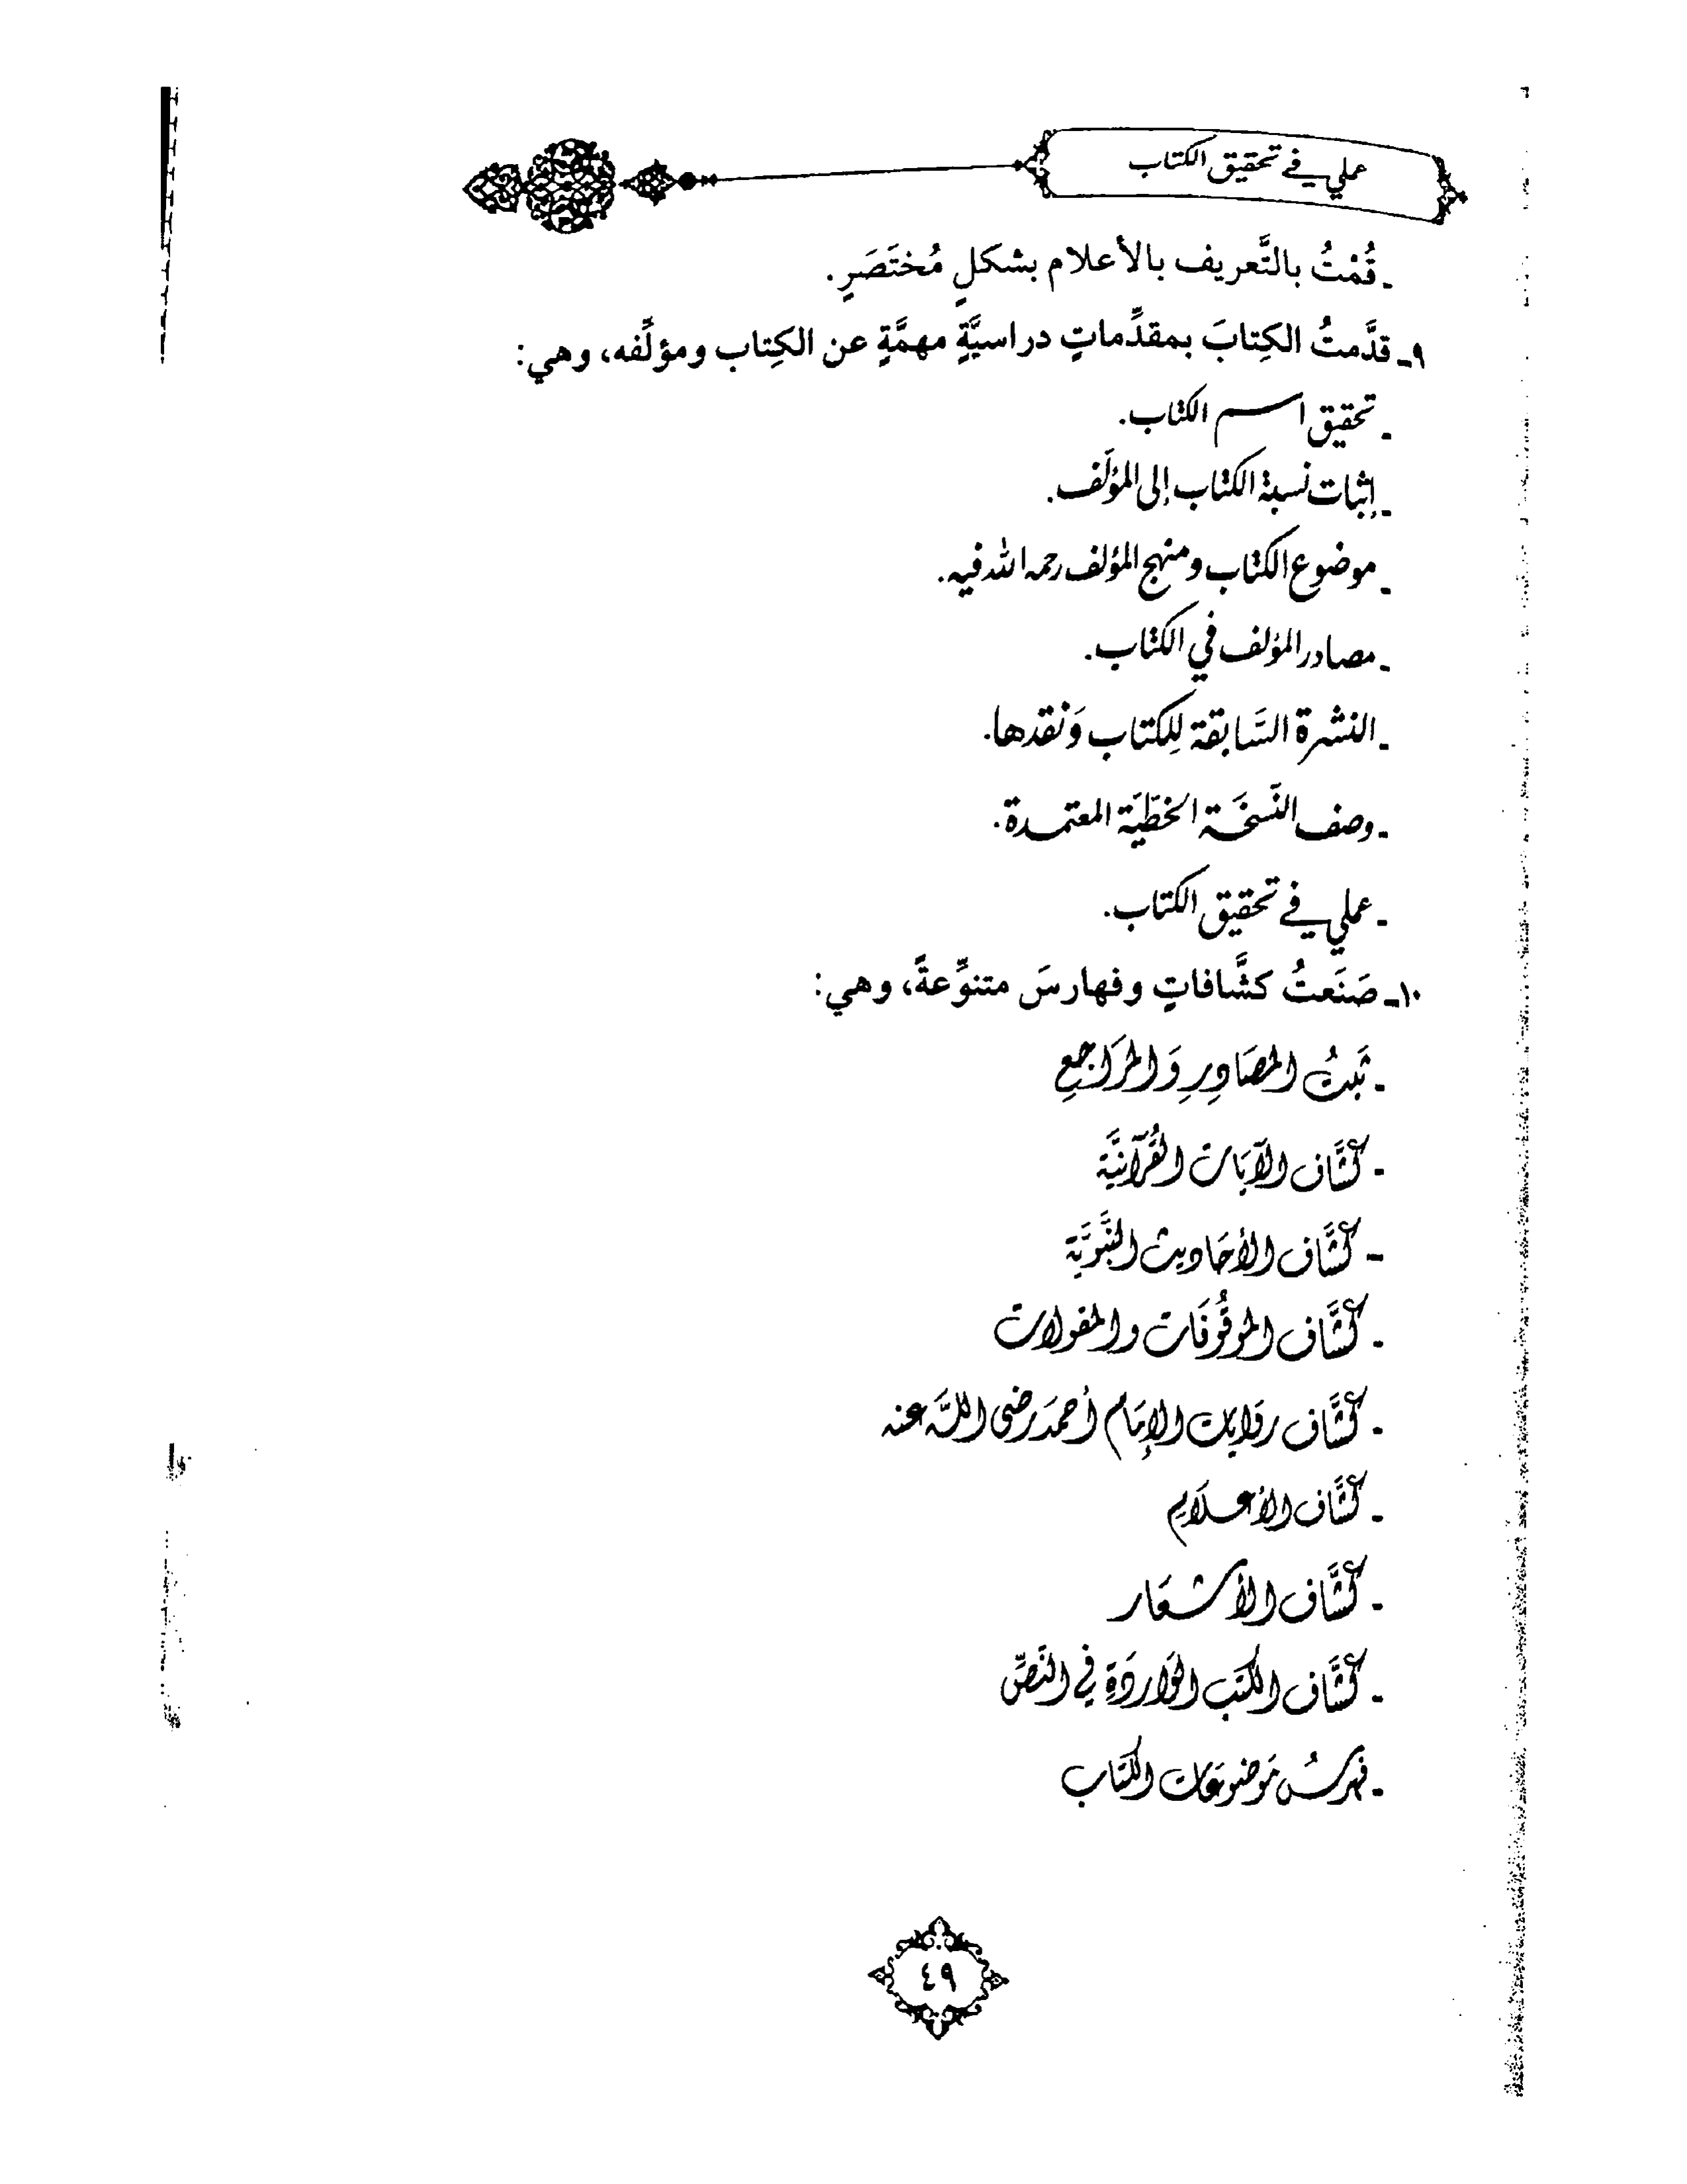 عملي في تحقيق الكتاب
ـ قُمْتُ بالتَّعريف بالأعلام بشكلٍ مُختَصَرٍ.
٩ـ قدَّمتُ الكِتابَ بمقدِّماتٍ دراسيَّةٍ مهمَّةٍ عن الكِتاب ومؤلِّفه، وهي:
ـ تحقيق اسم الكتاب.
ـ إثبات نسبة الكتاب إلى المؤلَف.
ـ موضوع الكتاب ومنهج المؤلف رحمه الله فيه.
ـ مصادر المؤلف في الكتاب.
ـ النشرة السَّابقة لِلكتاب وَنقدها.
ـ وصف النَسخَة الخطّيَة المعتمدة.
ـ عملي في تحقيق الكتاب.
١٠ـ صَنَعتُ كشَّافاتٍ وفهارسَ متنوِّعةً، وهي:
ـ ثَبتُ المصَادِرِ وَالمرَاجعِ
ـ كشَّاف الآيَات القُرآنيَّة
ـ كشَّاف الأحَاديث النَّبَويَّة
ـ كشَّاف الموقُوفَات والمقولات
ـ كشَّاف روَايات الإمَام أحمَد رضي اللَّه عنه
ـ كشَّاف الأعلَامِ
ـ كشَّاف الأشعَار
ـ كشَّاف الكتب الوَاردَةِ في النَصِّ
ـ فهرسُ مَوضوعَات الكتَاب
٤٩